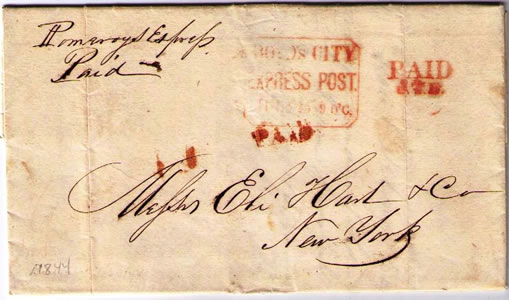 Pomeroys Express
Paid
BOYD'S CITY
EXPRESS POST.
O'C.
PAID
J.T.B.
PAID
Messrs Eli Hart & Co
New York
1844